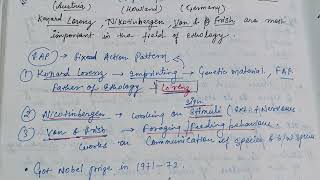 (Austria) (Howland) (Germany)
Konard Lorenz, Nikotinbergen, Van & B Frish are most
important in the field of Ethology.
FAP → Fixed Action Pattern
① Konard Lorenz → Imprinting → Genetic material. FAP.
Father of Ethology Lorenz
② Nicotinbergen → working on sign stimuli
③ Van & Frish → Foraging / Feeding behaviour.
works on Communication of species &
• Got Nobel prize in 1971-72.